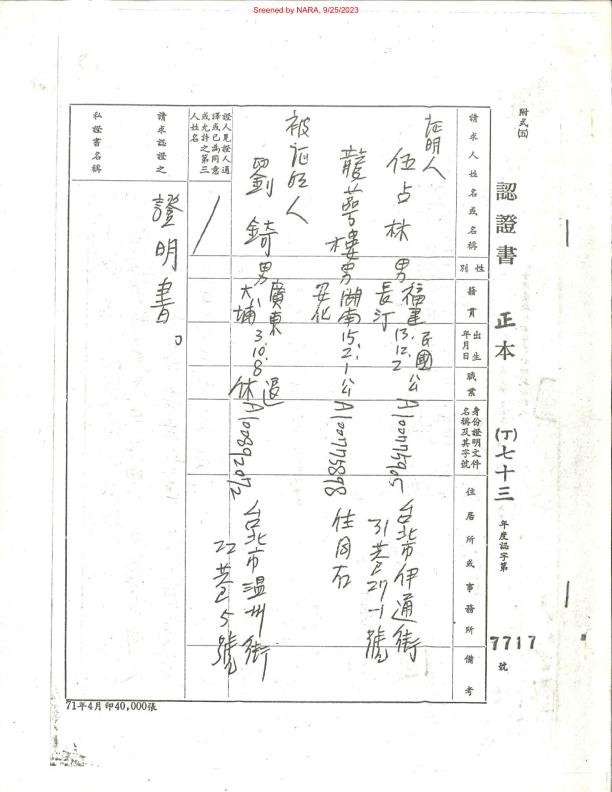 Sreened by NARA, 9/25/2023
附式(五)
認證書 正本 (丁)七十三 年度認字第 7717 號
請求人姓名或名稱
性別
籍貫
出生年月日
職業
身份證明文件名稱及其字號
住居所或事務所
備考
証明人
伍占林 男 福建長汀 民國13.12.2 公 A100775905 台北市伊通街31巷27-1號
龍蕚樓 男 湖南安化 15.2.1 公 A100775898 住同右
被証明人
劉錡 男 廣東大埔 3.10.8 退休 A100892072 台北市温州街22巷5號
證人見證人通譯或已為同意或允許之第三人姓名
請求認證之私證書名稱
證明書。
71年4月印40,000張